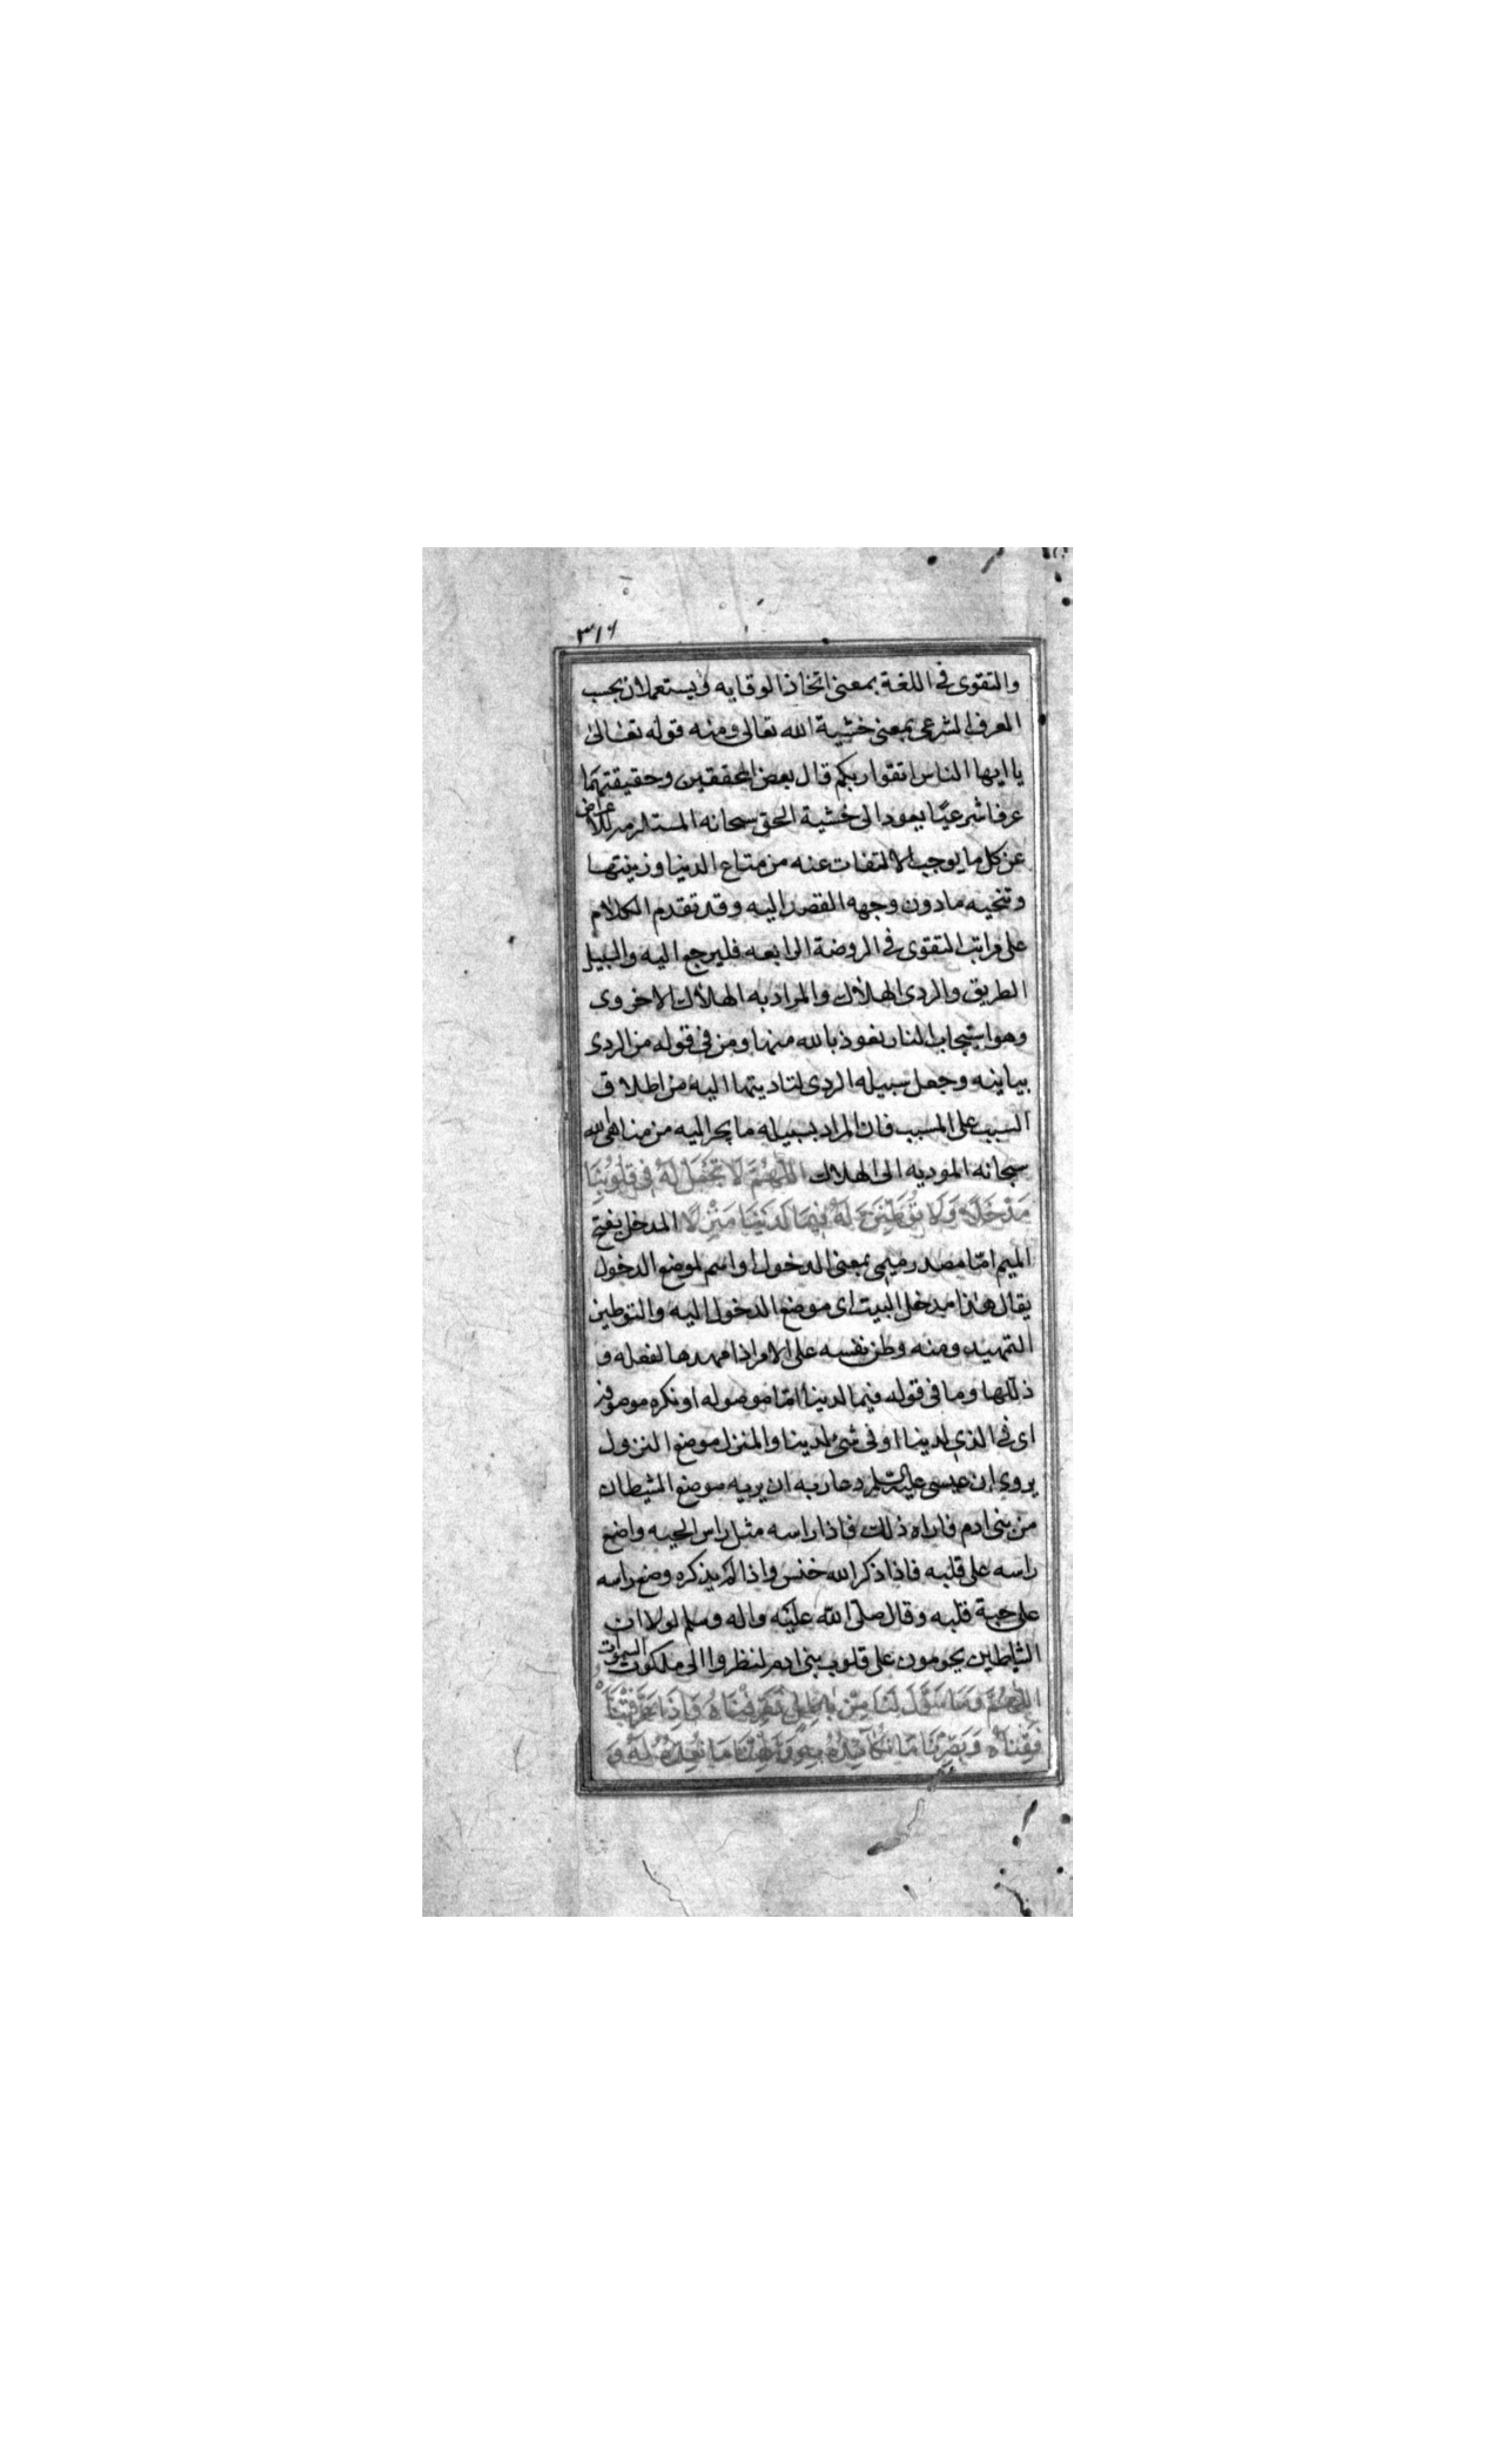 ٣١٦
والتقوى في اللغة بمعنى اتخاذ الوقايه ويستعملان بحسب
العرف الشرعي بمعنى خشية الله تعالى ومنه قوله تعالى
يا ايها الناس اتقوا ربكم قال بعض المحققين وحقيقتهما
عرفا شرعيًا يعود الى خشية الحق سبحانه المستلزم للاعراض
عن كل ما يوجب الالتفات عنه من متاع الدنيا وزينتها
وتنحيه مادون وجهه القصد اليه وقد تقدم الكلام
على مراتب التقوى في الروضة الرابعه فليرجع اليه والسبيل
الطريق والردى الهلاك والمراد به الهلاك الاخروى
وهو استيجاب النار نعوذ بالله منها ومن في قوله من الردى
بيانيه وجعل سبيله الردى لتاديتها اليه من اطلاق
السبب على المسبب فان المراد بسبيله ما يجر اليه من مناهى الله
سبحانه المودية الى الهلاك اللّهُمَّ لَا تَجْعَلْ لَهُ فِى قُلُوبِنَا
مَدْخَلًا وَلَا تُوَطِّنَنَّ لَهُ فِيمَا لَدَيْنَا مَنْزِلًا المدخل بفتح
الميم امّا مصدر ميمى بمعنى الدخول او اسم لموضع الدخول
يقال هذا مدخل البيت اى موضع الدخول اليه والتوطين
التمهيد ومنه وطن نفسه على الامر اذا مهدها لفعله و
ذللها وما فى قوله فيما لدينا امّا موصوله او نكره موصوفه
اى في الذى لدينا او فى شئ لدينا والمنزل موضع النزول
يروى ان عيسى عليه السلم دعا ربه ان يريه موضع الشيطان
من بنى ادم فاراه ذلك فاذا راسه مثل راس الحيه واضع
راسه على قلبه فاذا ذكر الله خنس واذا لم يذكره وضع راسه
على حبة قلبه وقال صلّى الله عليْه واله وسلم لولا ان
الشياطين يحومون على قلوب بنى ادم لنظروا الى ملكوت السموات
اللّهُمَّ وَمَا سَوَّلَ لَنَا مِنْ بَاطِلٍ فَعَرِّفْنَاهُ وَاِذَا عَرَّفْتَنَاهُ
فَقِنَاهُ وَبَصِّرْنَا مَا نُكَايِدُهُ بِهِ وَاَلْهِمْنَا مَا نُعِدُّهُ لَهُ وَ